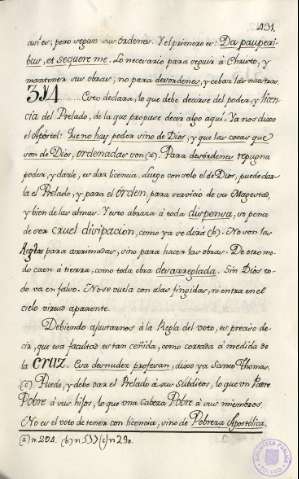 131.
Da pauperi-
bus, et sequere me. Lo necesario para seguir à Christo, y
mantener sus obras; no para desordenes, y cebar las nuestras
314 Esto declara, lo que debe decirse del poder, y licen
cia del Prelado, de la que propuse decir algo aqui. Ya nos dixo
el Apostol: Que no hay poder sino de Dios, y que las cosas que
son de Dios, ordenadas son (a). Para desordenes repugna
poder, y darle, es dar licencia. Luego con solo el de Dios, puede dar-
la el Prelado, y para el orden, para servicio de su Magestad,
y bien de las almas. Y esto abraza à toda dispensa, so pena
de ser cruel disipacion, como ya se dirà (b). No son las
Reglas para arrimadas, sino para hacer las obras. De otro mo-
do caen à tierra, como toda obra desarreglada. Sin Dios to-
do va en falso. No se vuela con alas fingidas, ni entra en el
cielo virtud aparente.
Debiendo ajustarnos à la Regla del voto, es preciso de-
cir, que esa facultad es tan ceñida, como cortada à medida de
la Cruz. Esa desnudez profesan, dixo ya Santo Thomas.
(c) Pueda, y debe dar el Prelado à sus subditos, lo que un Padre
Pobre à sus hijos, lo que una Cabeza Pobre à sus miembros.
No es el voto de tener con licencia, sino de Pobreza Apostolica.
(a) n 204. (b) n 537 (c) n 290.